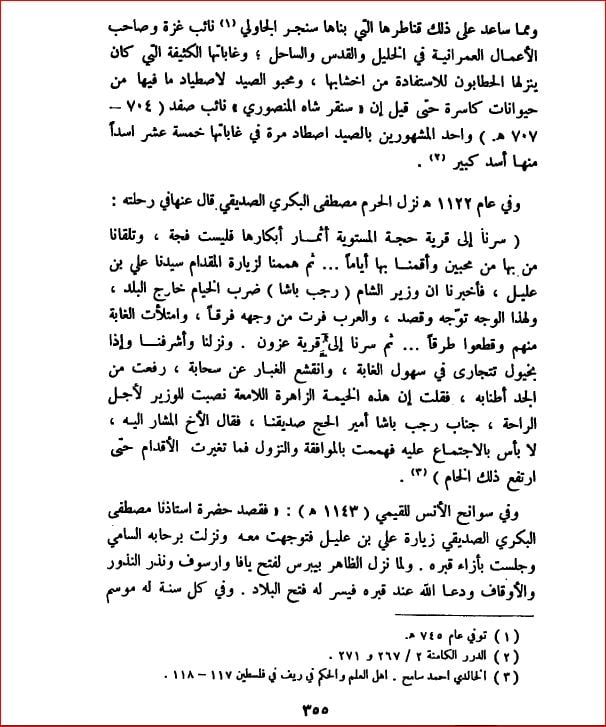 ومما ساعد على ذلك قناطرها التي بناها سنجر الجاولي (١) نائب غزة وصاحب
الأعمال العمرانية في الخليل والقدس والساحل ؛ وغاباتها الكثيفة التي كان
ينزلها الحطابون للاستفادة من اخشابها ، ومحبو الصيد لاصطياد ما فيها من
حيوانات كاسرة حتى قيل إن « سنقر شاه المنصوري » نائب صفد ( ٧٠٤ –
٧٠٧ هـ. ) واحد المشهورين بالصيد اصطاد مرة في غاباتها خمسة عشر اسداً
منها أسد كبير (٢) .
وفي عام ١١٢٢ هـ نزل الحرم مصطفى البكري الصديقي قال عنها في رحلته :
( سرنا إلى قرية حجة المستوية أثمار أبكارها فليست فجة ، وتلقانا
من بها من محبين وأقمنا بها أياماً ... ثم هممنا لزيارة المقدام سيدنا علي بن
عليل ، فأخبرنا ان وزير الشام ( رجب باشا ) ضرب الخيام خارج البلد ،
ولهذا الوجه توّجه وقصد ، والعرب فرت من وجهه فرقاً ، وامتلأت الغابة
منهم وقطعوا طرقاً ... ثم سرنا إلى قرية عزون . ونزلنا وأشرفنا وإذا
بخيول تتجارى في سهول الغابة ، وانقشع الغبار عن سحابة ، رفعت من
الجد أطنابه ، فقلت إن هذه الخيمة الزاهرة اللامعة نصبت للوزير لأجل
الراحة ، جناب رجب باشا أمير الحج صديقنا ، فقال الأخ المشار اليه ،
لا بأس بالاجتماع عليه فهممت بالموافقة والنزول فما تغيرت الأقدام حتّى
ارتفع ذلك الخام ) (٣) .
وفي سوانح الأنس للقيمي ( ١١٤٣ هـ ) : « فقصد حضرة استاذنا مصطفى
البكري الصديقي زيارة علي بن عليل فتوجهت معه ونزلت برحابه السامي
وجلست بأزاء قبره . ولما نزل الظاهر بيبرس لفتح يافا وارسوف ونذر النذور
والأوقاف ودعا الله عند قبره فيسر له فتح البلاد . وفي كل سنة له موسم
(١) توفي عام ٧٤٥ هـ.
(٢) الدرر الكامنة ٢ / ٢٦٧ و ٢٧١ .
(٣) الخالدي احمد سامح . اهل العلم والحكم في ريف في فلسطين ١١٧ – ١١٨ .
٣٥٥